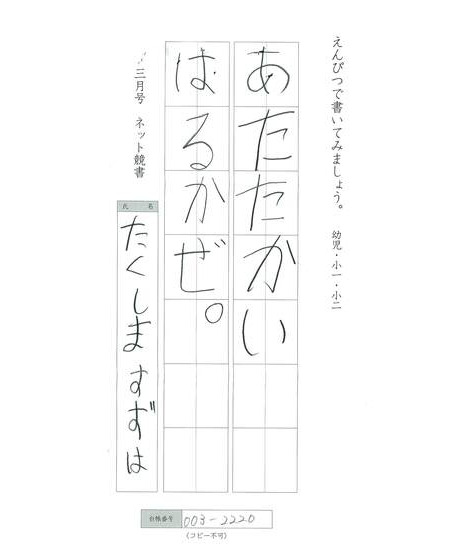 えんぴつで書いてみましょう。 幼児・小一・小二
あたたかい
はるかぜ。
三月号 ネット競書
氏名
たくしますずは
台帳番号 003-2220
(コピー不可)